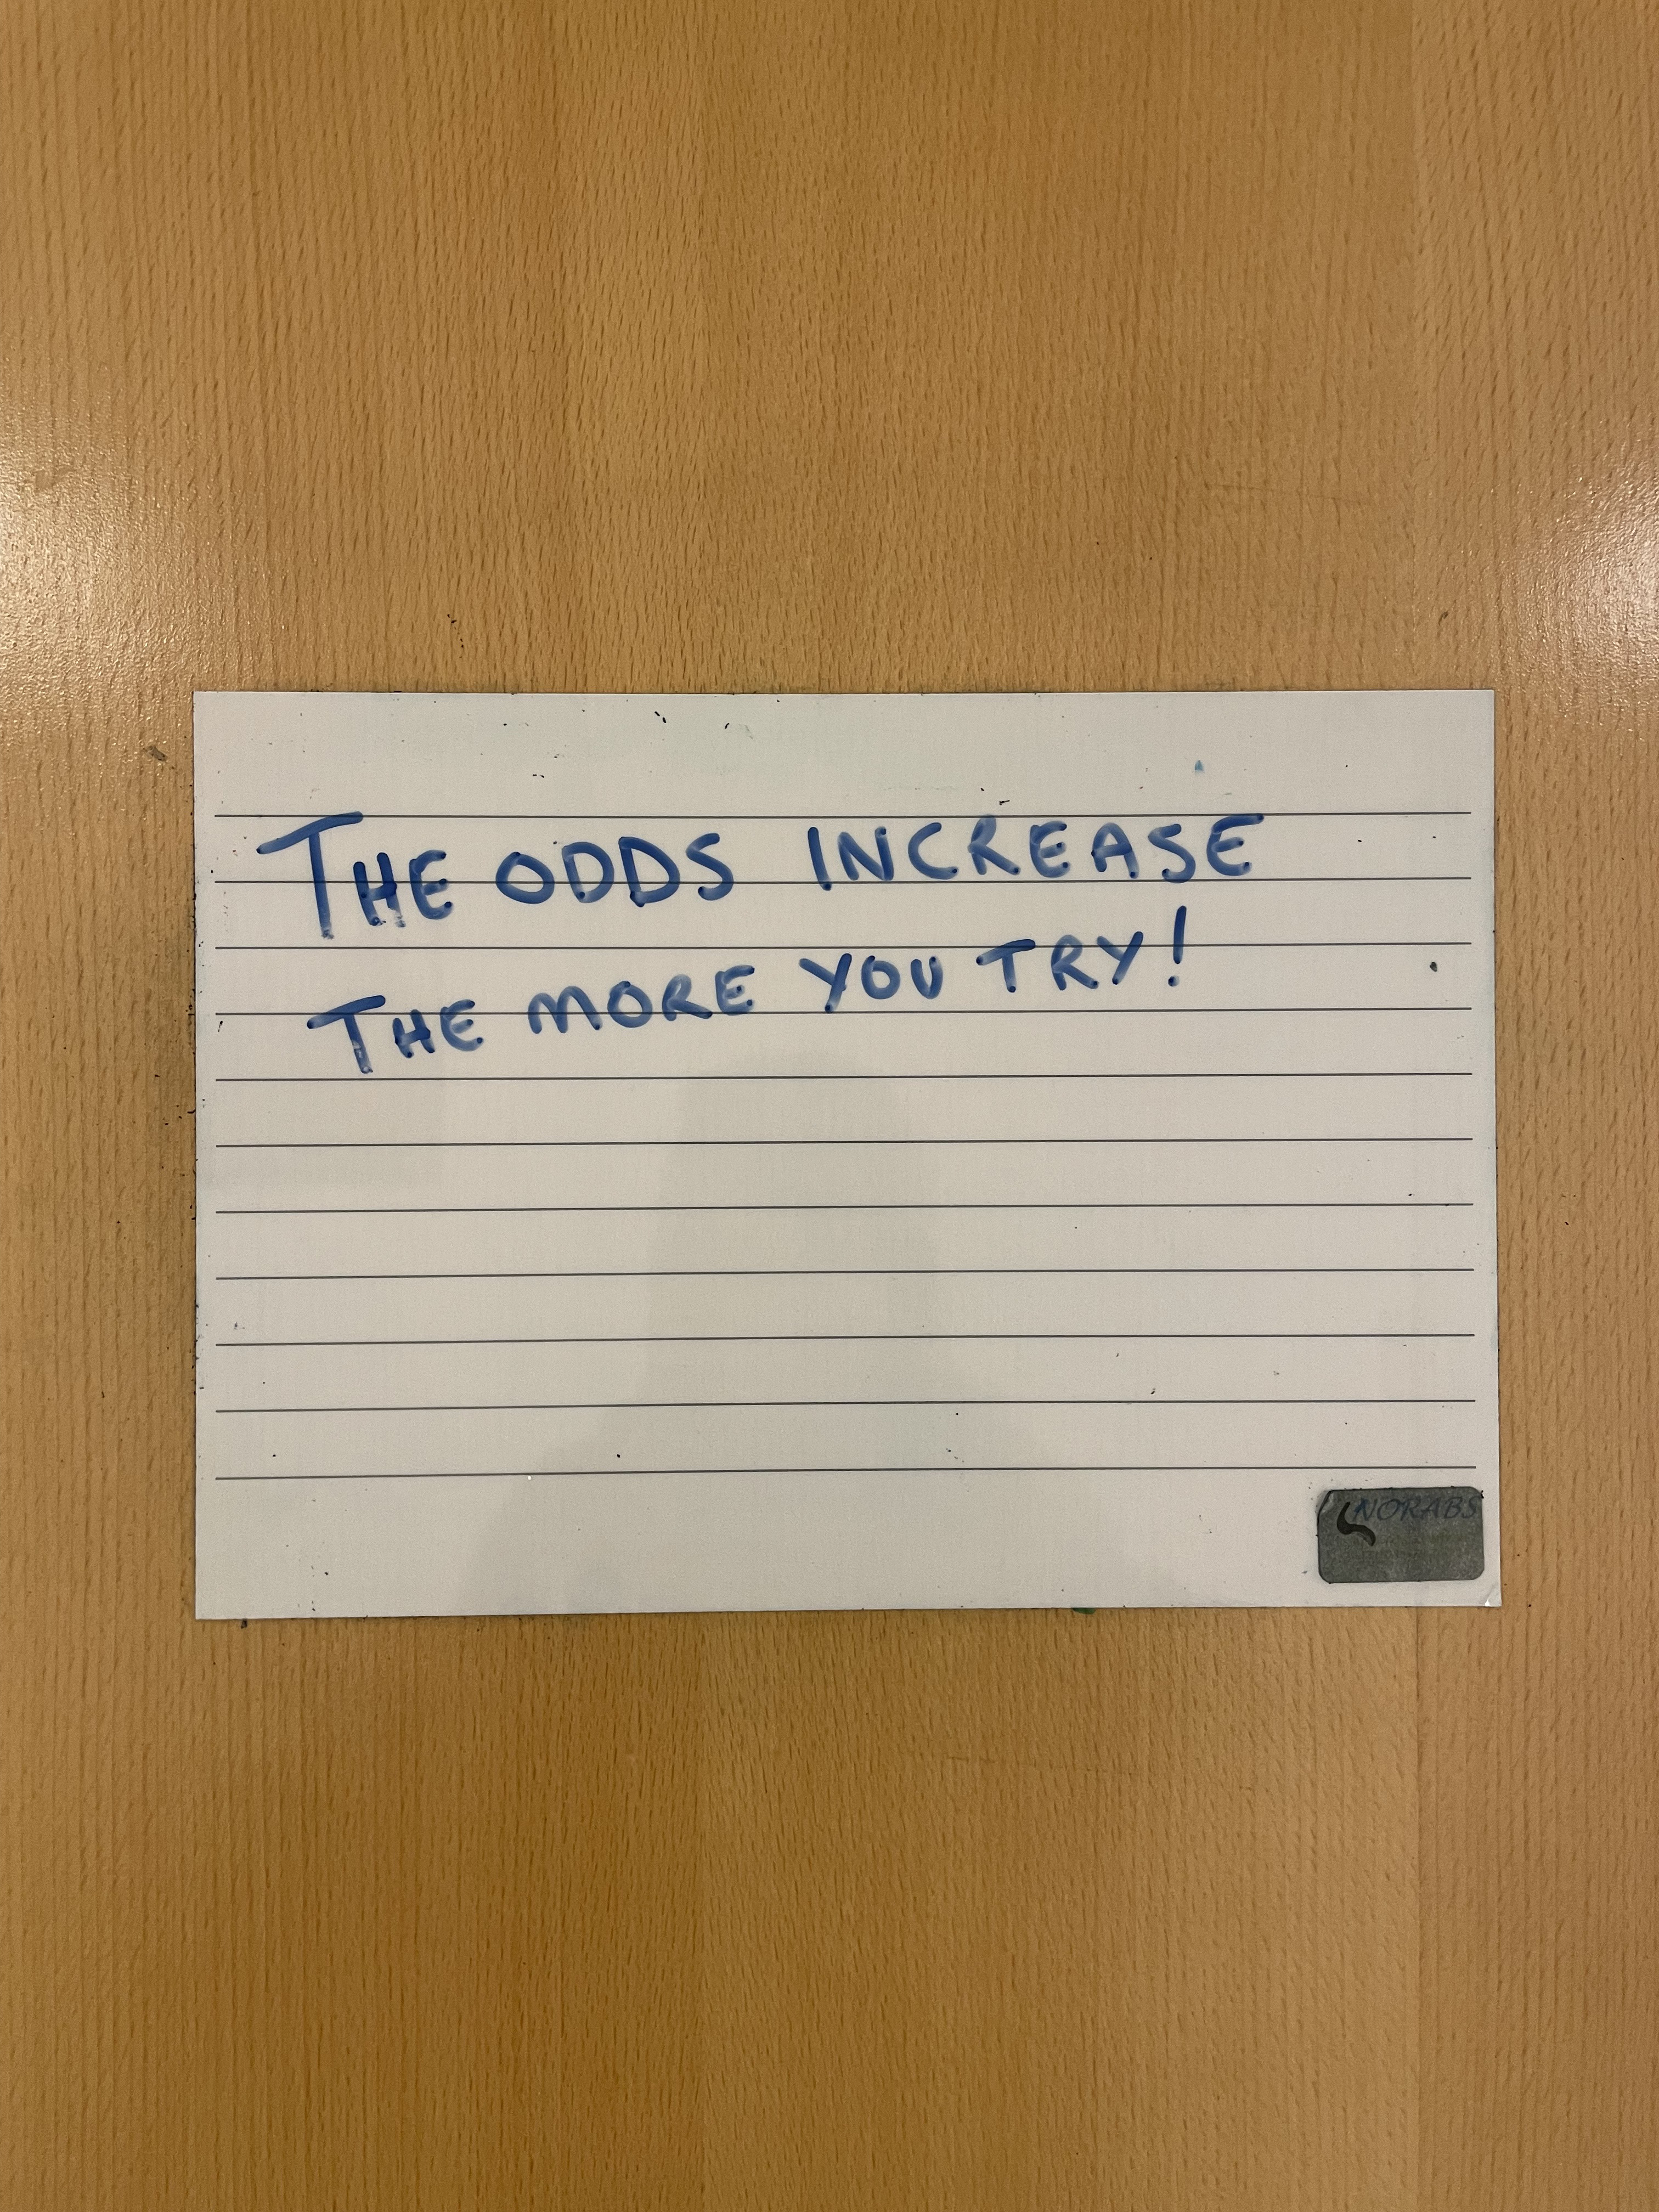 THE ODDS INCREASE
THE MORE YOU TRY!
NORABS